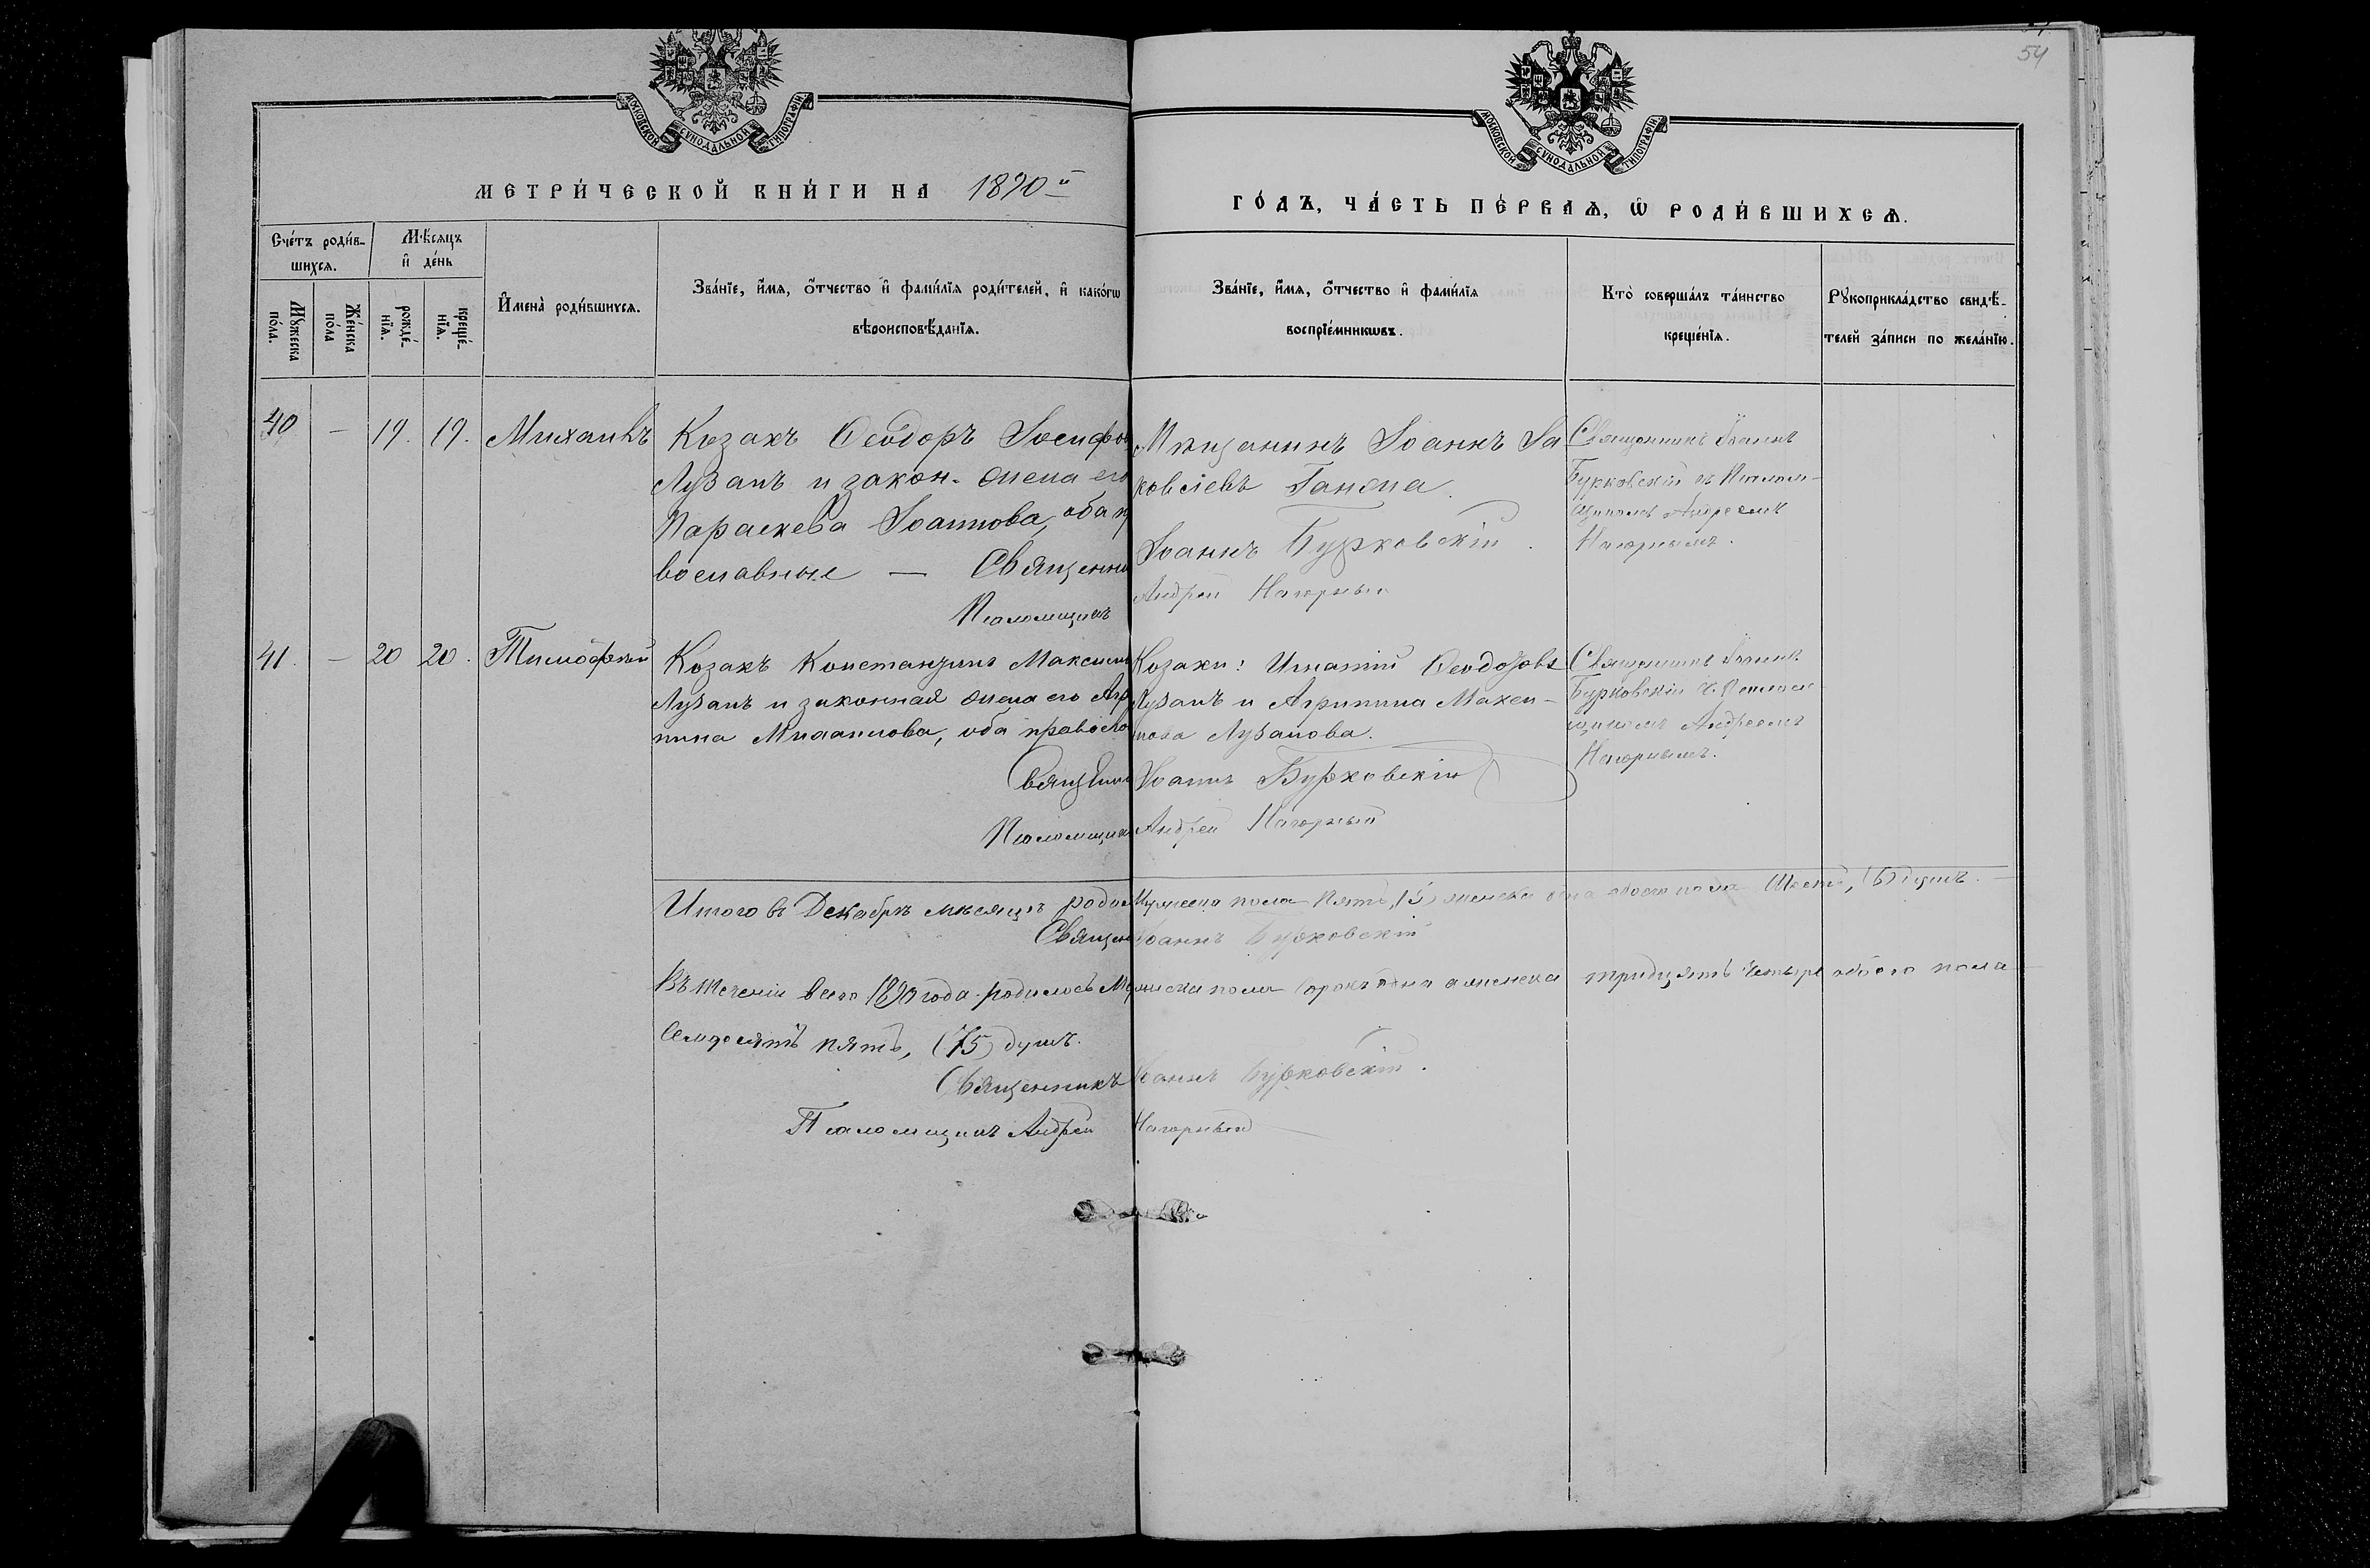 54
МОСКОВСКОЙ СУНОДАЛЬНОЙ ТИПОГРАФІИ
МОСКОВСКОЙ СУНОДАЛЬНОЙ ТИПОГРАФІИ
МЕТРИ́ЧЕСКОЙ КНИ́ГИ НА 1890й
ГО́ДЪ, ЧА́СТЬ ПЕ́РВАѦ, Ѡ҆ РОДИ́ВШИХСѦ.
Сче́тъ роди́в-
шихсѧ.
Мѣ́сѧцъ
и҆ де́нь
Мꙋ́жеска
по́ла.
Же́нска
по́ла
рожде́-
нїѧ.
креще́-
нїѧ.
И҆мена̀ роди́вшихсѧ.
Зва́нїе, и҆́мѧ, о҆́тчество и҆ фами́лїѧ роди́телей, и҆ како́гѡ
вѣроисповѣ́данїѧ.
Зва́нїе, и҆́мѧ, о҆́тчество и҆ фами́лїѧ
воспрїе́мникѡвъ.
Кто̀ соверша́лъ та́инство
креще́нїѧ.
Рꙋкоприкла́дство свидѣ́-
телей за́писи по жела́нїю.
40 — 19. 19. Михаилъ
Козакъ Ѳеодоръ Іосифов
Лузанъ и закон. жена его
Параскева Іоаннова, оба п
вославные — Священни
Псаломщикъ
Мѣщанинъ Іоаннъ Іа
ковлевъ Ганжа.
Іоаннъ Бурковскій.
Андрей Нагорный
Священникъ Іоаннъ
Бурковскій съ Псалом-
щикомъ Андреемъ
Нагорнымъ.
41. — 20 20. Тимофей
Козакъ Константинъ Максим
Лузанъ и законная жена его Агр
пина Михаилова, оба правосла
Священни
Псаломщик
Козаки: Игнатій Ѳеодоровъ
Лузанъ и Агрипина Макси-
мова Лузанова.
Іоаннъ Бурковскій
Андрей Нагорный
Священникъ Іоаннъ
Бурковскій с. Псалом
щикомъ Андреемъ
Нагорнымъ.
Итого въ Декабрѣ мѣсяцѣ родил Мужеска пола пять, (5) женска обоего пола Шесть, (6) душъ.
Священ Іоаннъ Бурковскій
Въ теченіи всего 1890 года родилось Мужеска пола сорокъ одна а женска тридцять четыре обоего пола
Семдесятъ пять, (75) душъ.
Священникъ Іоаннъ Бурковскій.
Псаломщикъ Андрей Нагорный